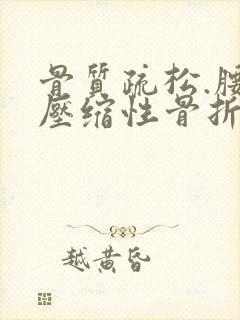 骨質疏松.腰
壓缩性骨折
越黄昏